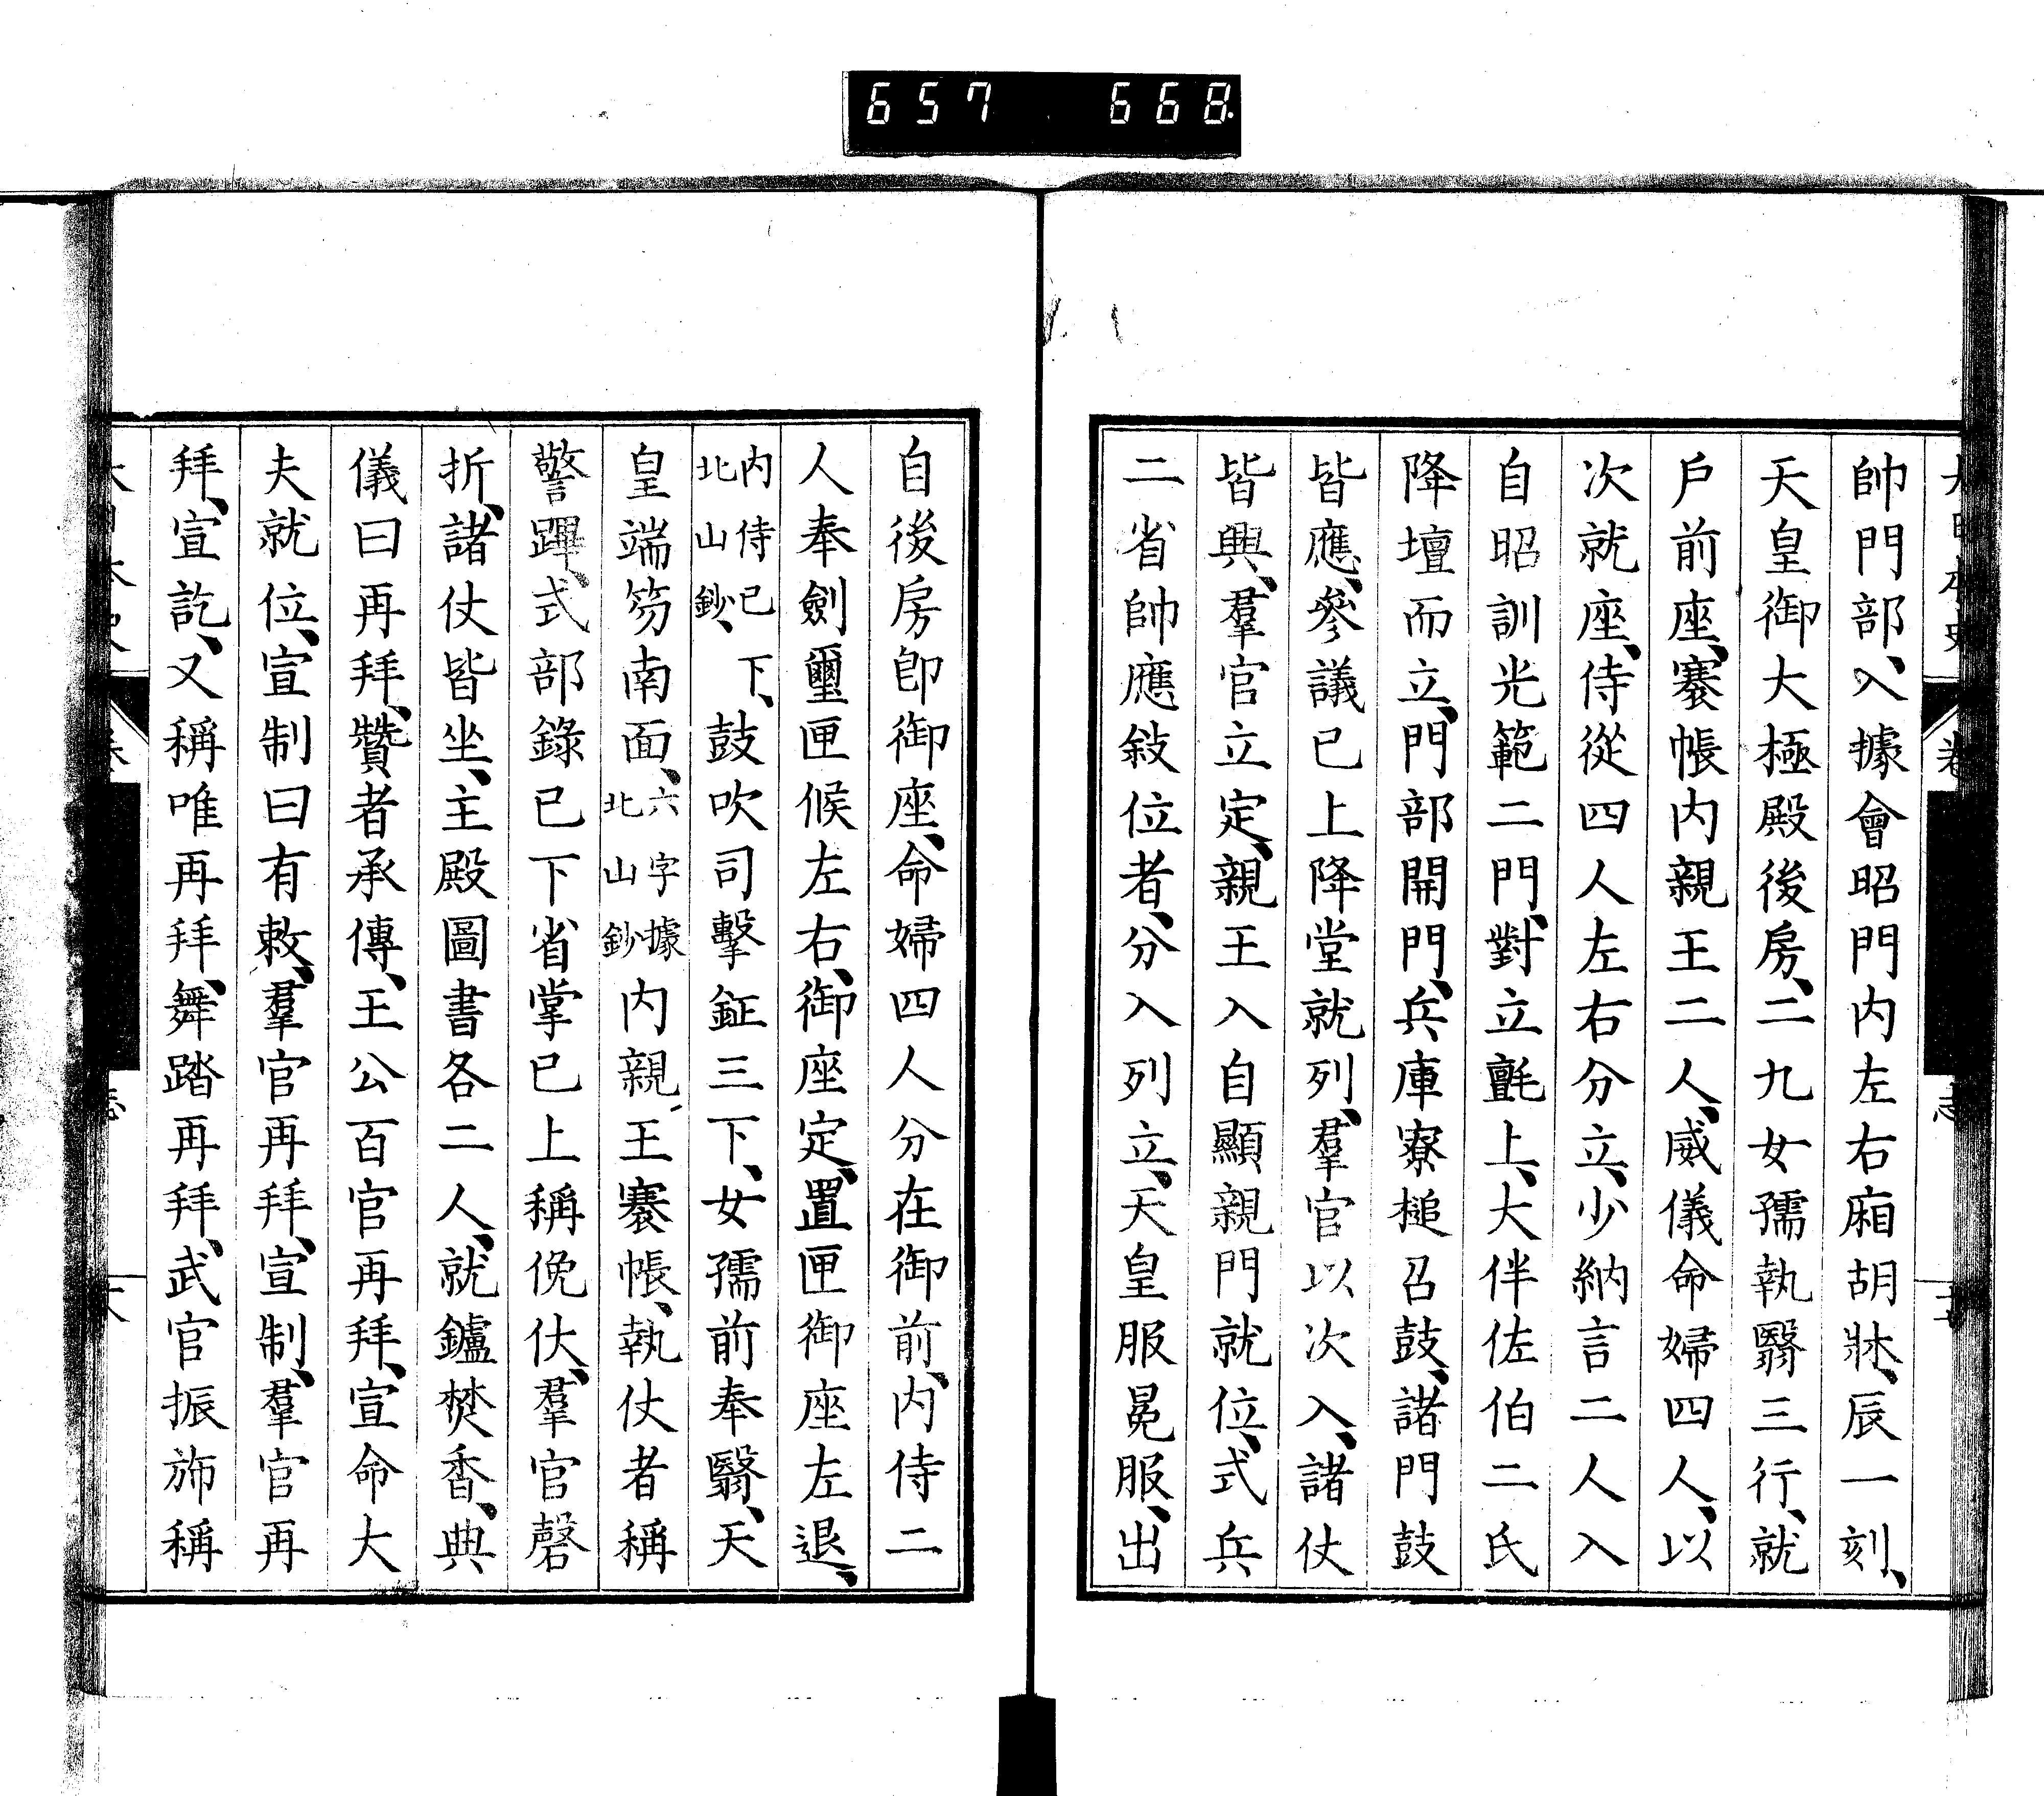 657 668
帥門部、入據會昭門内左右廂胡牀、辰一刻、
天皇御大極殿後房、二九女孺執翳三行、就
戶前座、褰帳内親王二人、威儀命婦四人、以
次就座、侍從四人左右分立、少納言二人入
自昭訓光範二門、對立氈上、大伴佐伯二氏
降壇而立、門部開門、兵庫寮槌召鼓、諸門鼓
皆應、參議已上降堂就列、羣官以次入、諸仗
皆興、羣官立定、親王入自顯親門就位、式兵
二省帥應敍位者、分入列立、天皇服冕服、出
自後房卽御座、命婦四人分在御前、内侍二
人奉劍璽匣候左右、御座定、置匣御座左退、
内侍已下、
北山鈔、
鼓吹司擊鉦三下、女孺前奉翳、天
皇端笏南面、
六字據
北山鈔
内親王褰帳、執仗者稱
警蹕、式部錄已下省掌已上稱俛伏、羣官磬
折、諸仗皆坐、主殿圖書各二人、就鑪焚香、典
儀曰再拜、贊者承傳、王公百官再拜、宣命大
夫就位、宣制曰有敕、羣官再拜、宣制、羣官再
拜、宣訖、又稱唯再拜、舞踏再拜、武官振斾稱